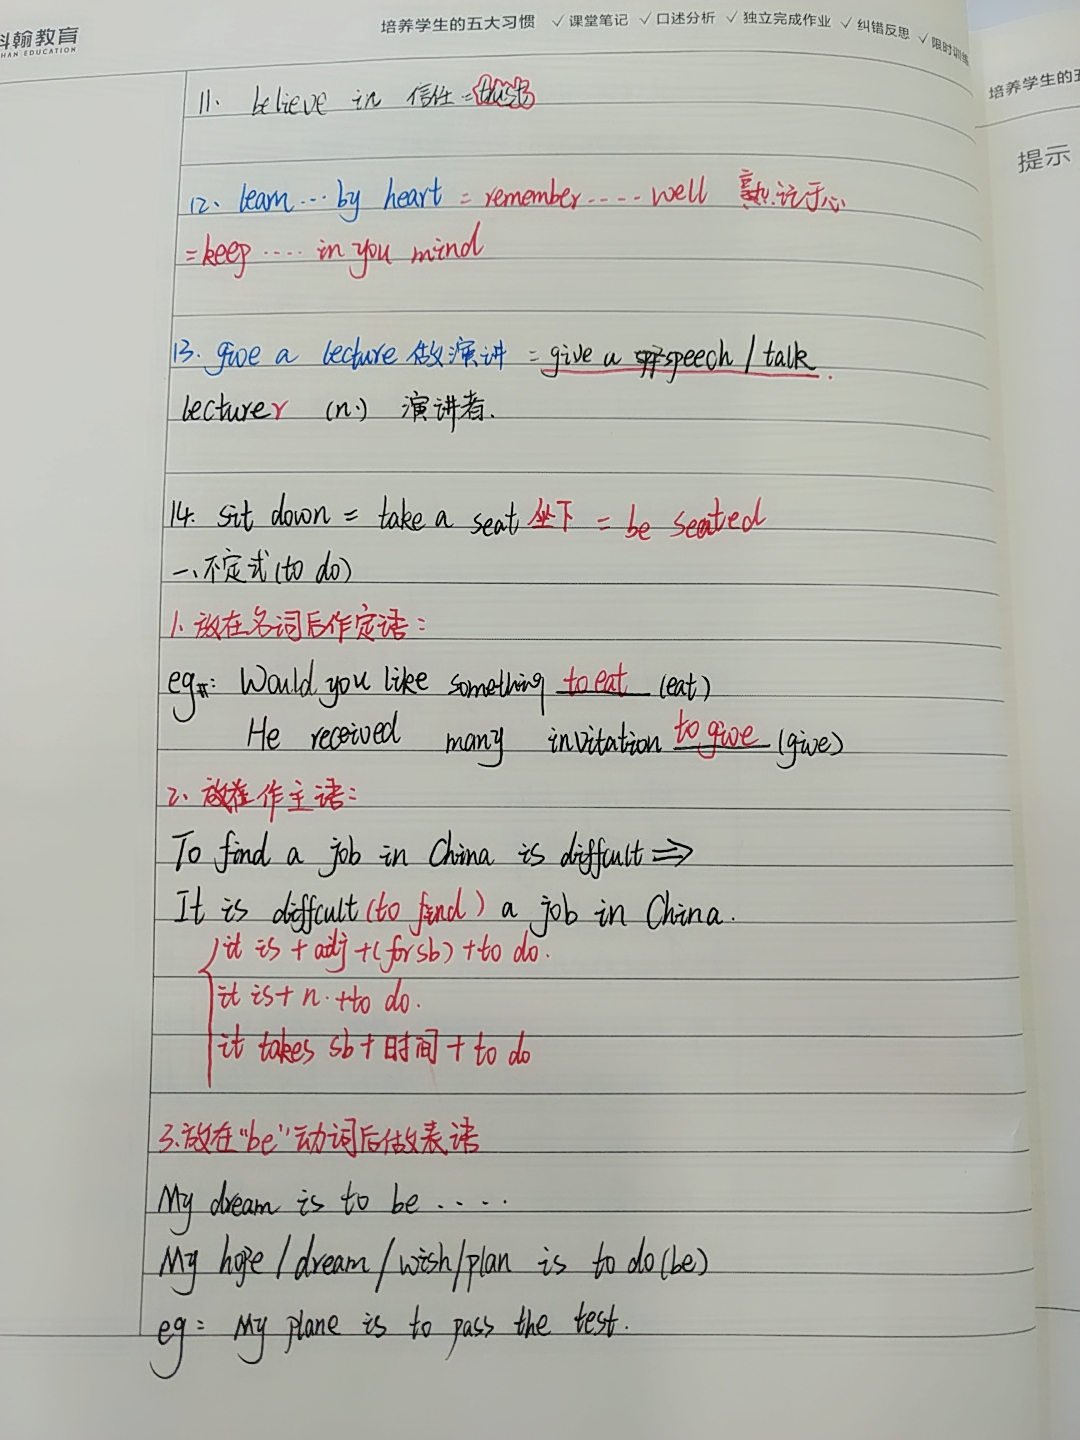 科翰教育
HAN EDUCATION
培养学生的五大习惯 ✓课堂笔记 ✓口述分析 ✓独立完成作业 ✓纠错反思 ✓限时训练
培养学生的五
提示
11. believe in 信任 = trust
12. learn ... by heart = remember .... well 熟记于心
= keep .... in you mind
13. give a lecture 做演讲 = give a speech / talk.
lecturer (n.) 演讲者.
14. sit down = take a seat 坐下 = be seated
一、不定式(to do)
1. 放在名词后作定语:
eg: Would you like something to eat (eat)
He received many invitation to give (give)
2. 放在作主语:
To find a job in China is diffcult ⇒
It is diffcult (to find) a job in China.
it is + adj + (for sb) + to do.
it is + n. + to do.
it takes sb + 时间 + to do
3. 放在"be"动词后做表语
My dream is to be ....
My hope / dream / wish / plan is to do (be)
eg: My plane is to pass the test.